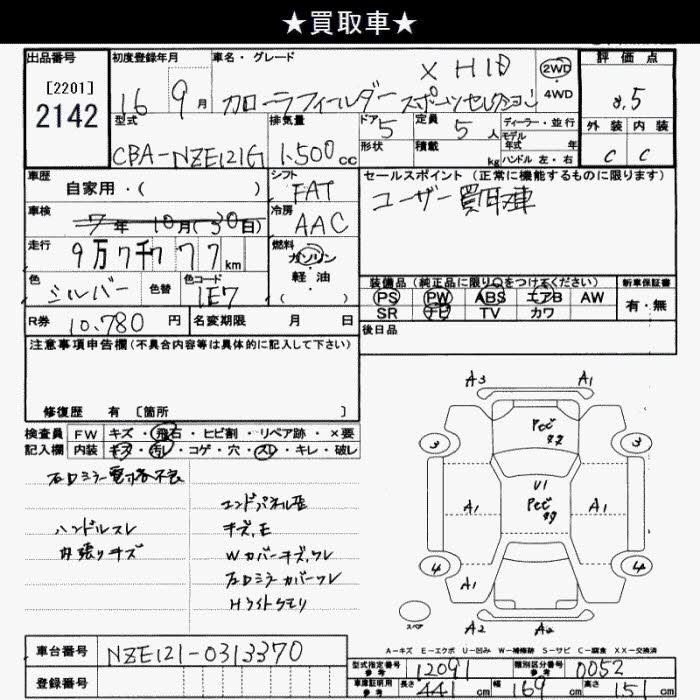 ★買取車★
出品番号
[2201]
2142
初度登録年月
16 9月
車名・グレード
X HID
カローラフィールダー スポーツセレクション
2WD
4WD
評価点
3.5
外装 内装
C C
型式
CBA-NZE121G
排気量
1.500cc
ドア 5
形状
定員 5人
積載 kg
ディーラー・並行
モデル
年式 年
ハンドル 左・右
車歴
自家用・( )
シフト
FAT
車検
7年 10月(30日)
冷房
AAC
走行
9万7千7 77km
燃料
ガソリン
軽油
( )
色
シルバー
色替
色コード
1E7
R券 10.780円
名変期限 月 日
セールスポイント(正常に機能するものに限ります)
ユーザー買取車
装備品(純正品に限り○をつけてください)
PS PW ABS エアB AW
SR ナビ TV カワ
新車保証書
有・無
後日品
注意事項申告欄(不具合内容等は具体的に記入して下さい)
修復歴 有 [箇所 ]
検査員記入欄
FW キズ・飛石・ヒビ割・リペア跡・×要
内装 キズ・汚れ・コゲ・穴・スレ・キレ・破レ
左ドミラー電格不良
ハンドルスレ
内張りキズ
エンドパネル歪
キズ,E
Wカバーキズ,ワレ
左ドミラーカバーワレ
Hライトクモリ
A3 A1
3 3
A1 U1 A1
4 4
A1
A2 A2
スペア
A-キズ E-エクボ U-凹み W-補修跡 S-サビ C-腐食 XX-交換済
車台番号 NZE121-0313370
登録番号
型式指定番号 参考 12041
類別区分番号 参考 0052
車庫証明用 参考 長さ 441cm 幅 169cm 高さ 151cm